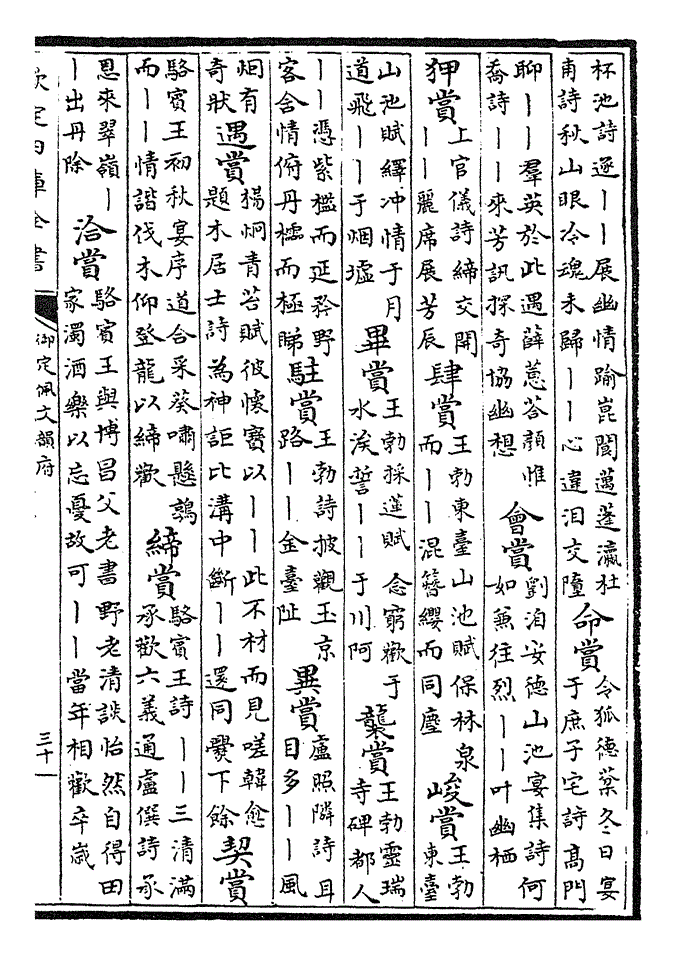 杯池詩逐——展幽情踰崑閬邁蓬瀛杜
甫詩秋山眼冷魂未歸——心違泪交墮
命賞
令狐德棻冬日宴
于庶子宅詩高門
聊——羣英於此遇薛蕙荅顔惟
喬詩——來芳訊探奇協幽想
會賞
劉洎安德山池宴集詩何
如兼往烈——叶幽栖
狎賞
上官儀詩締交開
——麗席展芳辰
肆賞
王勃東臺山池賦保林泉
而——混簪纓而同塵
峻賞
王勃
東臺
山池賦繹冲情于月
道飛——于烟墟
畢賞
王勃採蓮賦念窮歡于
水涘誓——于川阿
襲賞
王勃靈瑞
寺碑都人
——憑紫檻而延矜野
客含情俯丹檽而極睇
駐賞
王勃詩披觀玉京
路——金臺阯
異賞
盧照隣詩耳
目多——風
烟有
奇狀
遇賞
楊炯青苔賦彼懷寶以——此不材而見嗟韓愈
題木居士詩為神詎比溝中斷——還同爨下餘
契賞
駱賓王初秋宴序道合采葵嘯懸鶉
而——情諧伐木仰登龍以締歡
締賞
駱賓王詩——三清滿
承歡六義通盧僎詩承
恩來翠嶺—
—出丹除
洽賞
駱賓王與博昌父老書野老清談怡然自得田
家濁酒樂以忘憂故可——當年相歡卒歲
欽定四庫全書
御定佩文韻府
三十一